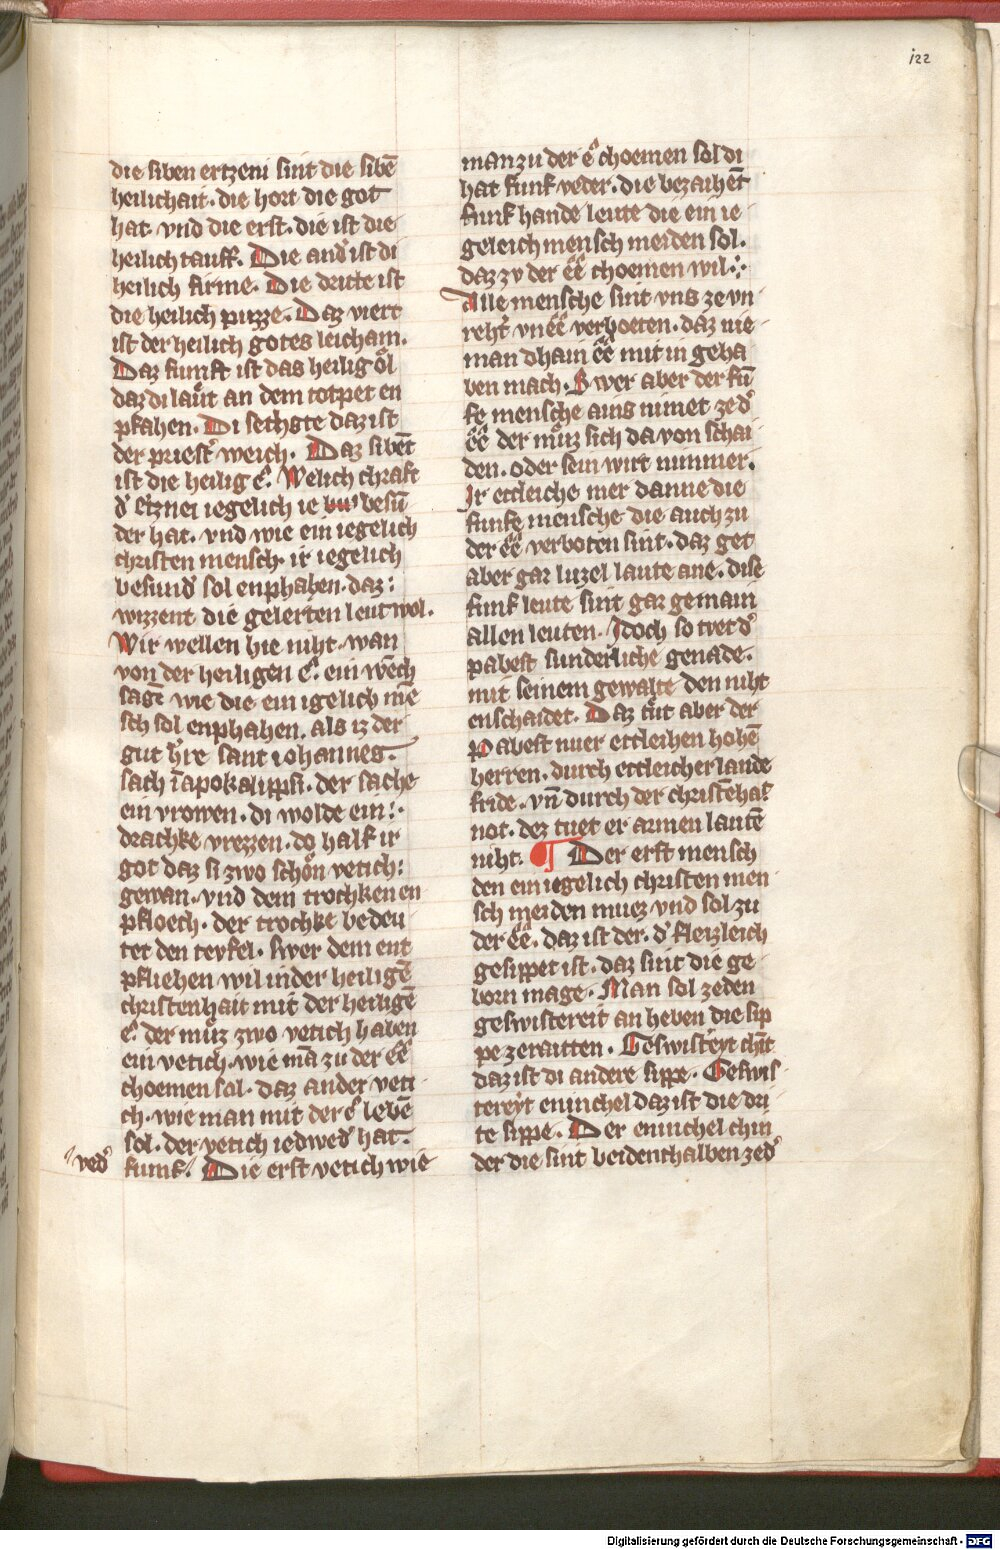 122
die siben ertzeni sint die sibē
heilichait · die hort die got
hat · vnd die erst · die ist die
heilich tauff · Die and᾽ ist di
heilich firme · Die dritte ist
die heilich puzze · Daz viert
ist der heilich gotes leicham.
Daz funft ist das heilig oͤl
daz di laͤut an dem totpet en
pfahen · Di sechgte daz ist
der priest᾽ weich · Daz sibēt
ist die heilig eͤ · Welich chraft
d᾽ ertznei iegelich ie besū
der hat · vnd wie ein iegelich
christen mensch · ir iegelich
besund᾽ sol enphahen · daz :
wizzent die gelerten leut wol ·
Wir wellen hie niht · wan
von der heiligen eͤ · ein wēch
sagē wie die ein igelich mē
sch sol enphahen · als iz der
gut h᾽re sant iohannes ·
sach ī apokalippsi · der sache
ein vrowen · di wolde ein :·
drachke vrezzen · do half ir
got daz si zwo schoͤn vetich :
gewan · vnd dem trochken en
pfloech · der trochke bedeu
tet den teyfel · swer dem ent
pfliehen wil in der heiligē
christenhait mit der heiligē
eͤ · der muͤz zwo vetich haben
ein vetich · wie mā zu der eͤe
choemen sol · daz ander veti
ch · wie man mit der eͤ lebē
sol · der vetich iedwed᾽ hat ·
ved᾽
funf · Die erst vetich wie
man zu der eͤ choemen sol di
hat funf veder · die bezaihēt
funf hande leute die ein ie
geleich mensch meiden sol ·
daz zv der eͤe choemen wil :·
Alle mensche sint vns ze vn
reht᾽ vn eͤe verboeten · daz nie
man dhain eͤe mit in geha
ben mach · Swer aber der fū
fe mensche ains nimet ze d᾽
eͤe der muͤz sich da von schai
den · oder sein wirt nimmer ·
Ir ettleiche mer danne die
funfe mensche die auch zu
der eͤe verboten sint · daz get
aber gar luzel laute ane · dise
funf leute sint gar gemain
allen leuten · Idoch so tvet d᾽
pabest sunderliche genade ·
mit seinem gewalte den niht
enschaidet · Daz tuͤt aber der
Pabest nuer ettleihen hohē
herren · durch ettleicher lande
fride · vn̄ durch der christēhait
not · dez tuet er armen lautē
niht · ¶ Der erst mensch
den ein iegelich christen men
sch meiden muez vnd sol zu
der eͤe · daz ist der · d᾽ fleizleich
gesippet ist · daz sint die ge
born mage · Man sol ze den
geswistereit an heben die sip
pe ze raitten · Geswisteyt chīt
daz ist di andere sippe · Geswis
tereyt eninchel daz ist die dri
te sippe · Der eninchel chin
der die sint beidenthalben ze d᾽
Digitalisierung gefördert durch die Deutsche Forschungsgemeinschaft - DFG